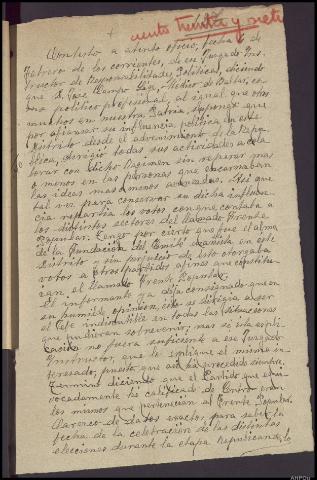 ciento treinta y siete
Contesto a atento oficio, fecha 8 de
Febrero de los corrientes, de ese Juzgado Ins-
tructor de Responsabilidades Políticas, diciendo
que D. José Campo Médico de
era político profesional, al igual que otros
muchos en nuestra Patria, supongo que
por afianzar su influencia política en este
distrito desde el advenimiento de la Repú
blica, dirigió todas sus actividades a cola
borar con dicho Regimen sin reparar mas
o menos en las personas que encarnaban
las ideas mas o menos avanzadas. Así que
tal vez para conservar su dicha influen-
cia repartia los votos con que contaba a
los distintos sectores del llamado Frente
Popular. Tengo por cierto que fue el alma
de la fundación del Comité en este
Distrito y sin perjuicio de esto otorgaba
votos a otros partidos afines que constitu-
ían el llamado Frente Popular.
El informante ya deja consignado que en
su humilde opinion, éste se dirigia a ser
el Jefe indiscutible en todas las situaciones
que pudieran sobrevenir; mas si esta expli
cación no fuera suficiente a ese Juzgado
Instructor, que le explique el mismo in-
teresado, puesto que así ha procedido siempre.
Termino diciendo que el Partido que equi-
vocadamente he calificado de Centro eran
los mismos que pertenecian al Frente Popular.
Carezco de datos exactos para saber la
fecha de la celebración de las distintas
elecciones durante la etapa republicana, lo